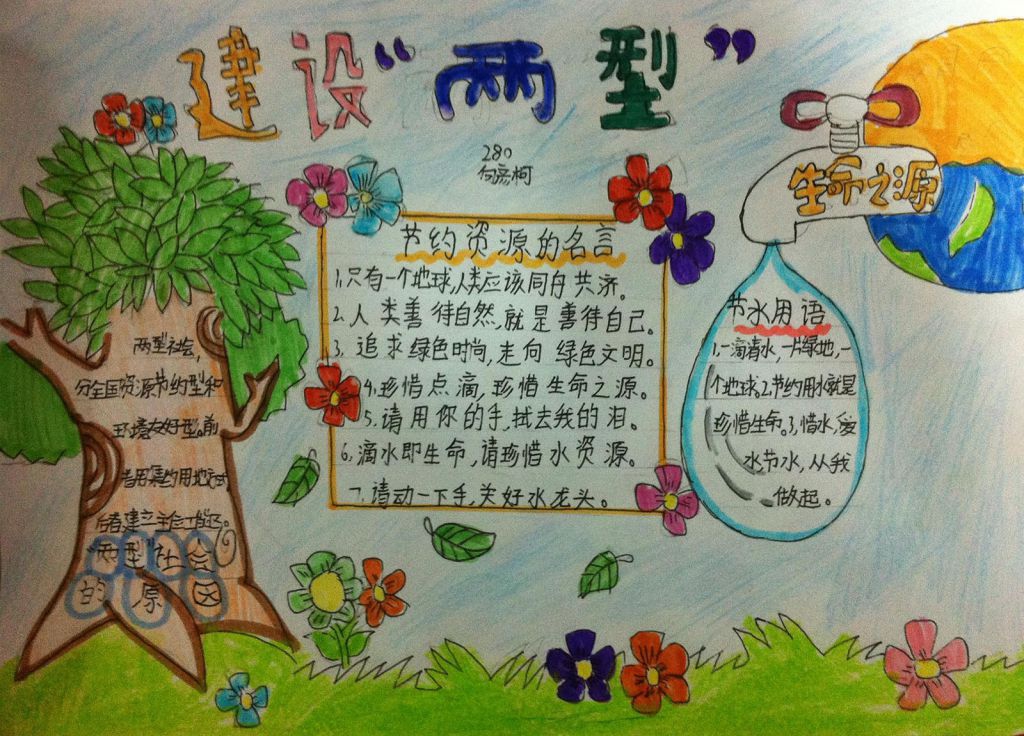 建设“两型”
280
生命之源
节约资源的名言
1.只有一个地球,人类应该同舟共济。
2.人类善待自然,就是善待自己。
3.追求绿色时尚,走向绿色文明。
4.珍惜点滴,珍惜生命之源。
5.请用你的手,拭去我的泪。
6.滴水即生命,请珍惜水资源。
7.请动一下手,关好水龙头。
节水用语
1.一滴清水,一片绿地,一
个地球。2.节约用水就是
珍惜生命。3.惜水,爱
水节水,从我
做起。
两型社会,
分全国资源节约型和
环境友好型。前
者用集约用地方式,
后者建立
“两型”社会
的原因